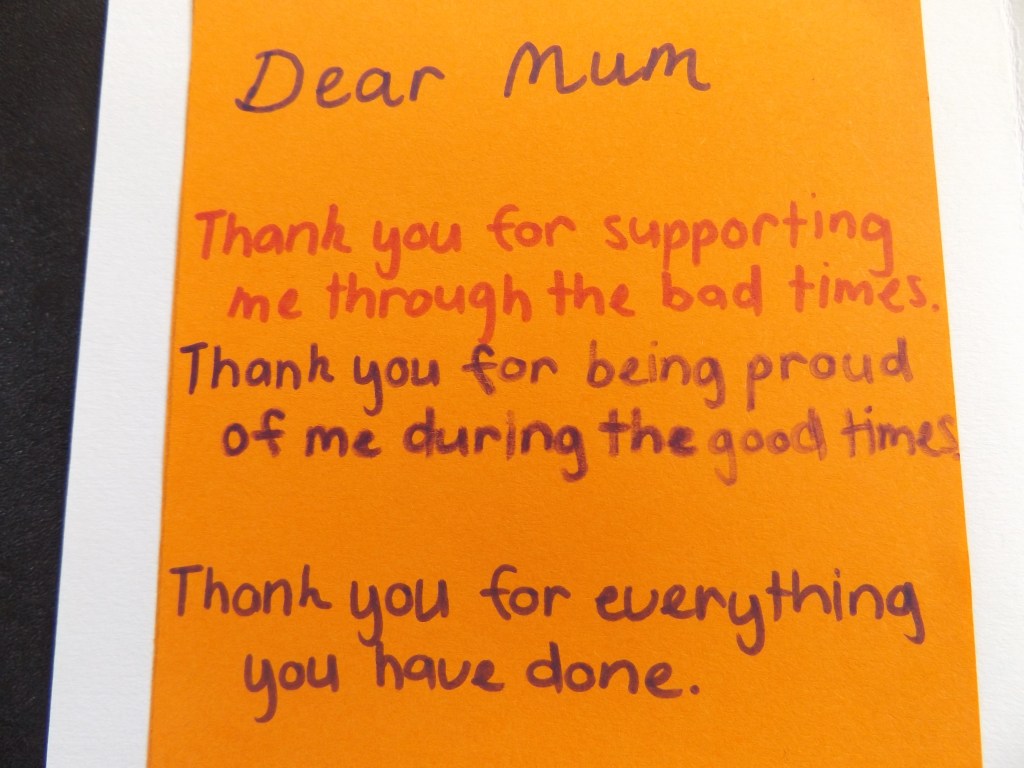 Dear Mum
Thank you for supporting
me through the bad times.
Thank you for being proud
of me during the good times.
Thank you for everything
you have done.